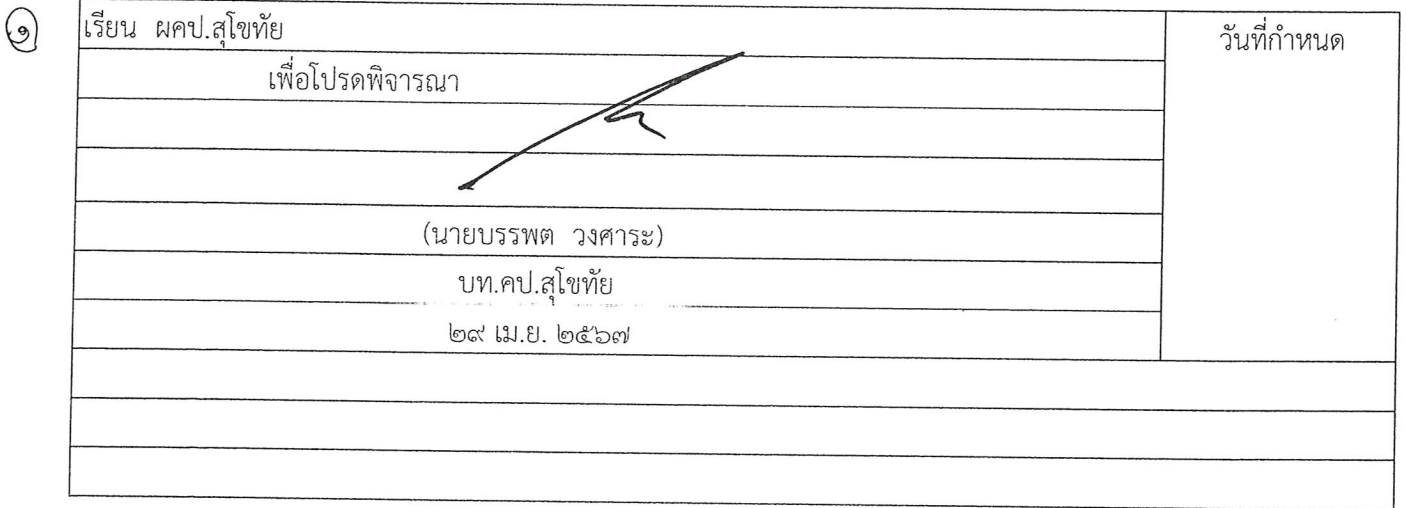 ๑
เรียน ผคป.สุโขทัย
วันที่กำหนด
เพื่อโปรดพิจารณา
(นายบรรพต วงศาระ)
บท.คป.สุโขทัย
๒๙ เม.ย. ๒๕๖๗